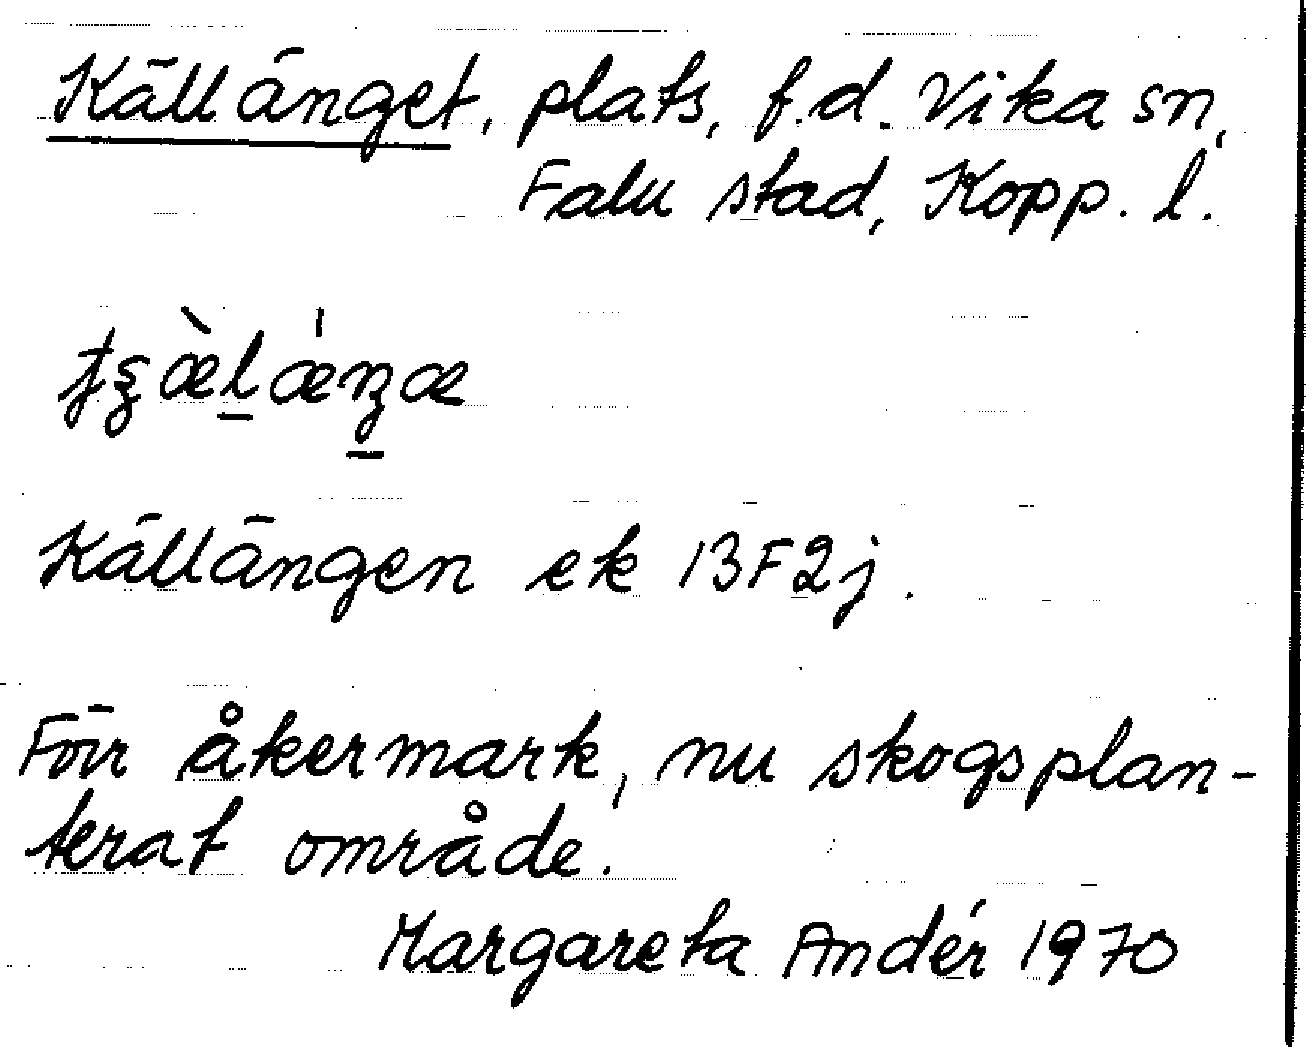 Källänget, plats, f.d. Vika sn,
Falu stad, Kopp. l.
Källängen ek 13F2j.
Förr åkermark, nu skogsplan-
terat område.
Margareta Andér 1970